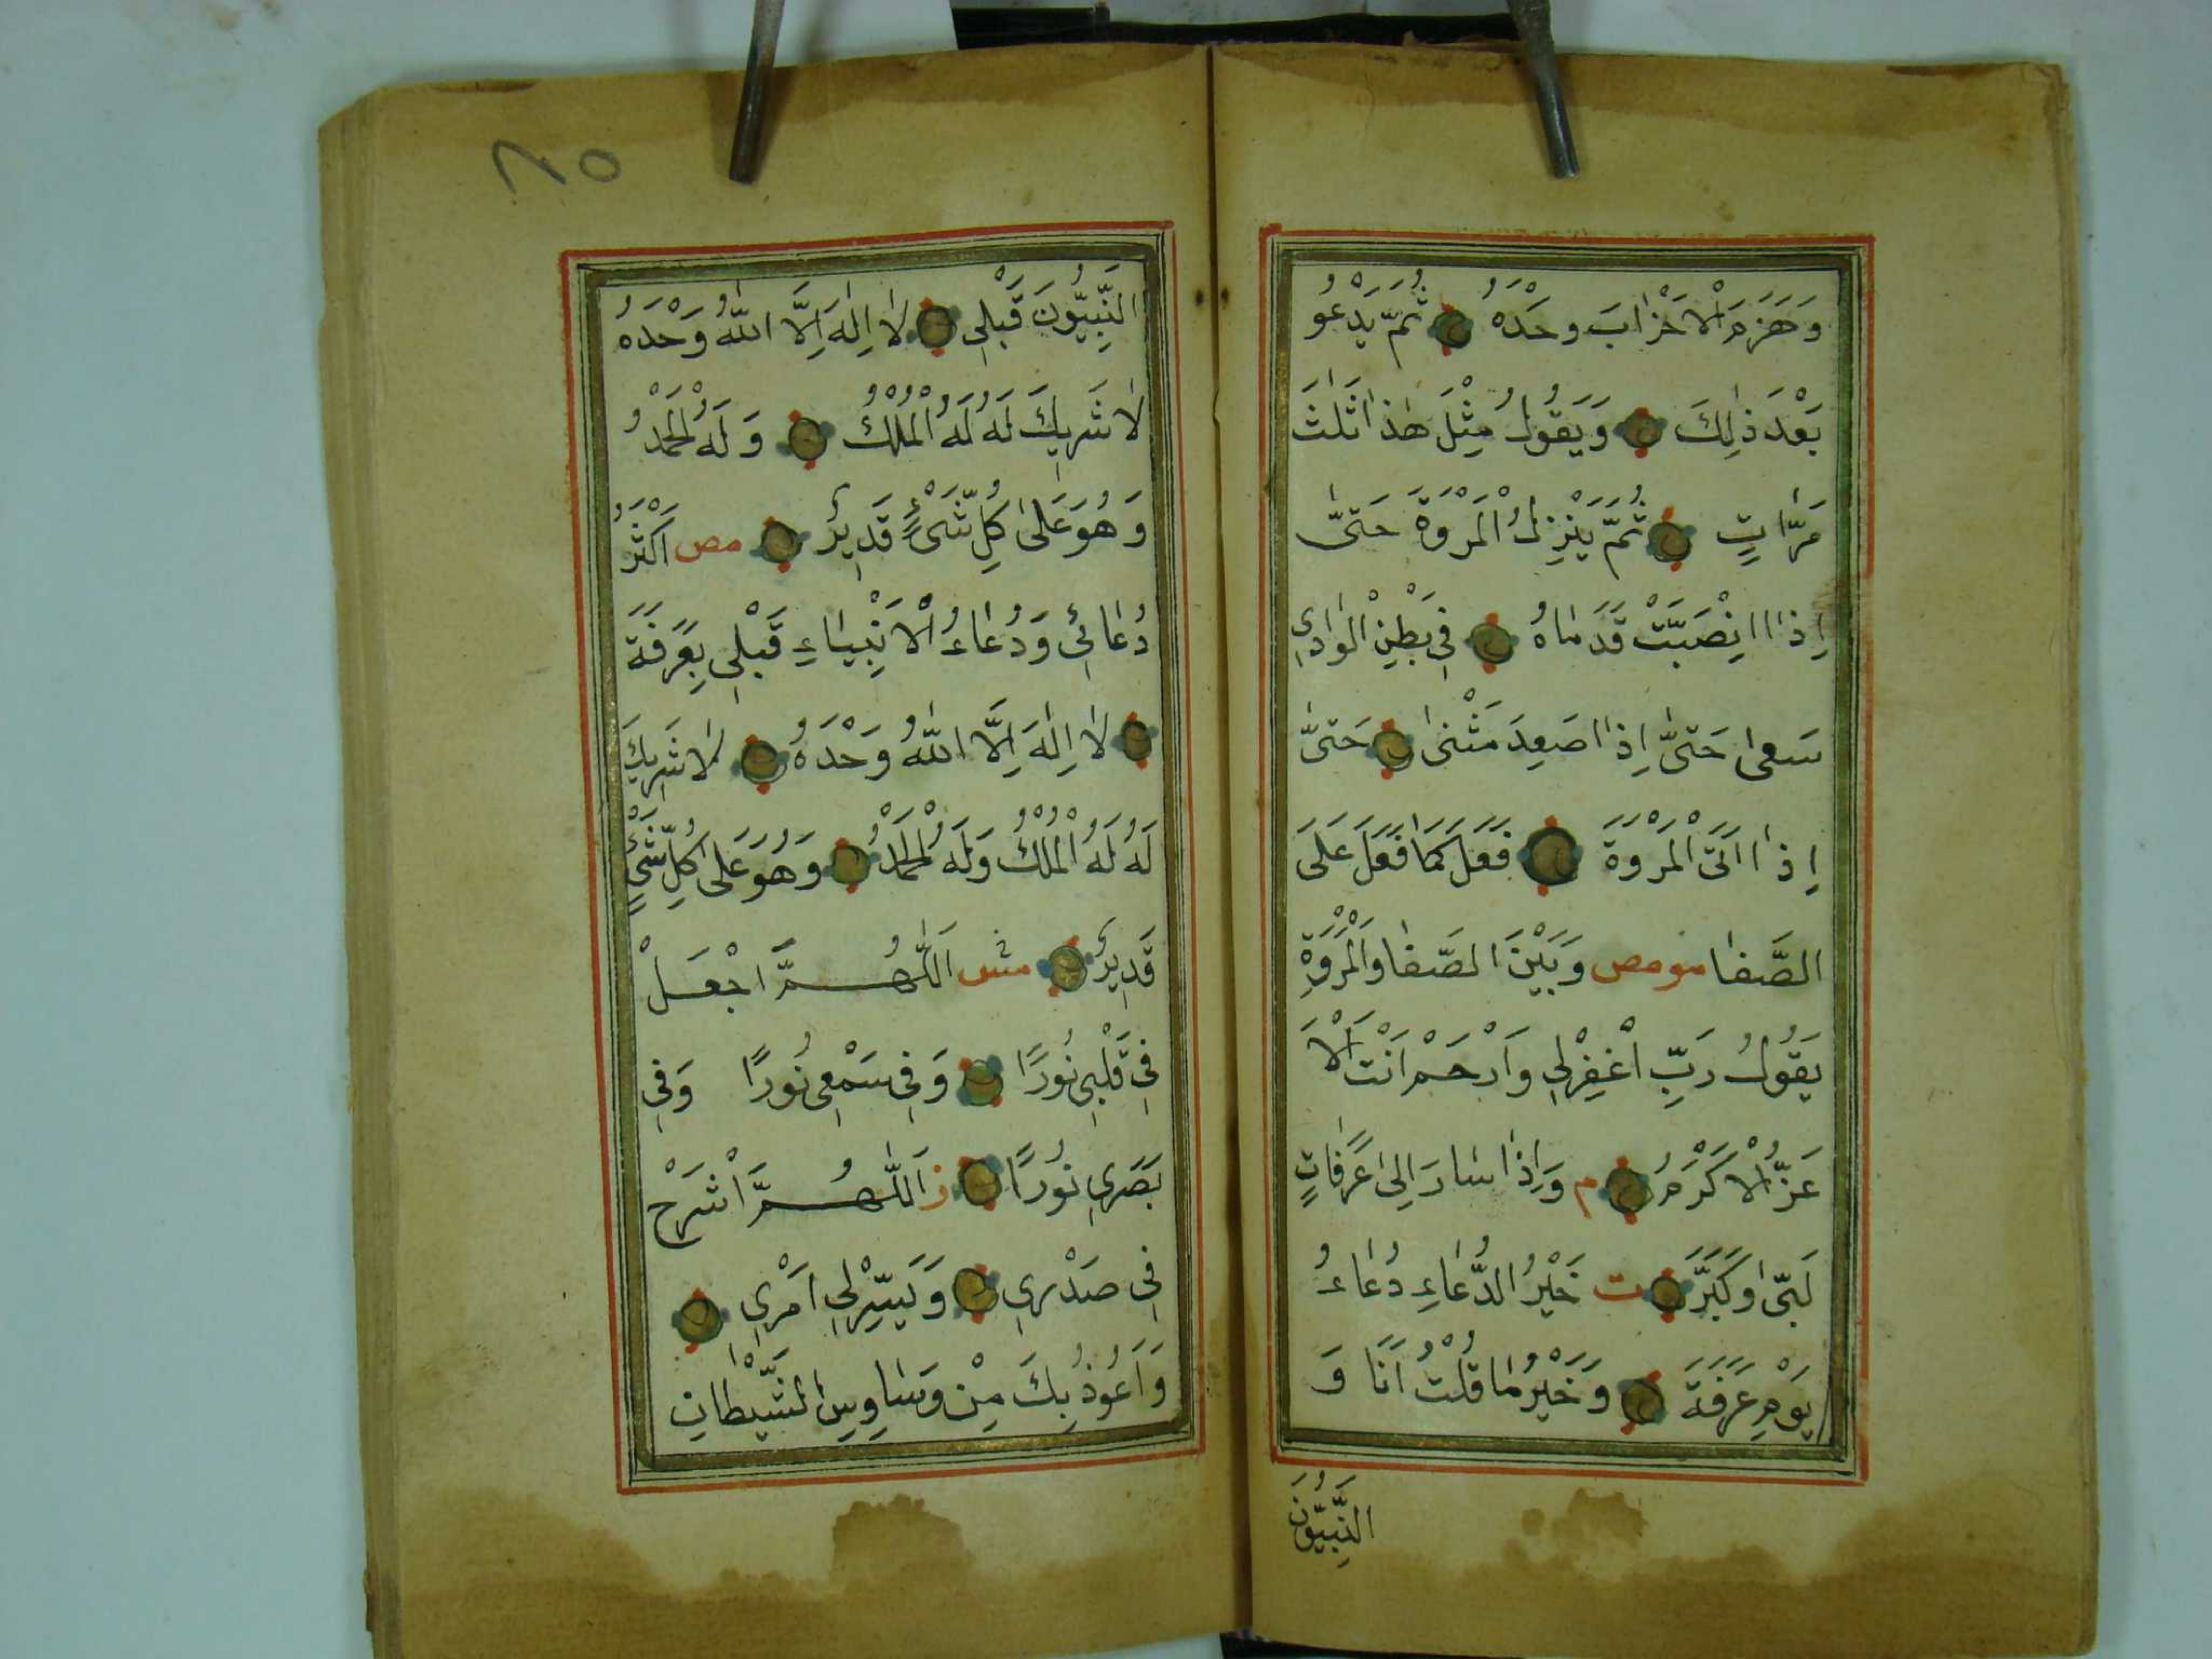 وَهَزَمَ الْاَحْزَابَ وَحْدَهُ ثُمَّ يَدْعُو
بَعْدَ ذٰلِكَ وَيَقُولُ مِثْلَ هٰذَا ثَلٰثَ
مَرَّاتٍ ثُمَّ يَنْزِلُ الْمَرْوَةَ حَتىّٰ
اِذَا انْصَبَّتْ قَدَمَاهُ فِي بَطْنِ الْوَادِي
سَعٰى حَتىّٰ اِذَا صَعِدَ مَشٰى حَتىّٰ
اِذَا اَتَى الْمَرْوَةَ فَعَلَ كَمَا فَعَلَ عَلَى
الصَّفَا مومص وَبَيْنَ الصَّفَا وَالْمَرْوَةِ
يَقُولُ رَبِّ اغْفِرْلِي وَارْحَمْ اَنْتَ الْاَ
عَزُّ الْاَكْرَمُ م وَاِذَا سَارَ اِلىٰ عَرَفَاتٍ
لَبّىٰ وَكَبَّرَ ت خَيْرُ الدُّعَاءِ دُعَاءُ
يَوْمِ عَرَفَةَ وَخَيْرُ مَا قُلْتُ اَنَا وَ
النَّبِيُّونَ
٨٥
النَّبِيُّونَ قَبْلِي لَا اِلٰهَ اِلَّا اللّٰهُ وَحْدَهُ
لَا شَرِيكَ لَهُ لَهُ الْمُلْكُ وَلَهُ الْحَمْدُ
وَهُوَ عَلىٰ كُلِّ شَيْءٍ قَدِيرٌ مص اَكْثَرُ
دُعَائِي وَدُعَاءُ الْاَنْبِيَاءِ قَبْلِي بِعَرَفَةَ
لَا اِلٰهَ اِلَّا اللّٰهُ وَحْدَهُ لَا شَرِيكَ
لَهُ لَهُ الْمُلْكُ وَلَهُ الْحَمْدُ وَهُوَ عَلىٰ كُلِّ شَيْءٍ
قَدِيرٌ مش اَللّٰهُمَّ اجْعَلْ
فِي قَلْبِي نُورًا وَفِي سَمْعِي نُورًا وَفِي
بَصَرِي نُورًا ز اَللّٰهُمَّ اشْرَحْ
فِي صَدْرِي وَيَسِّرْلِي اَمْرِي
وَاَعُوذُ بِكَ مِنْ وَسَاوِسِ الشَّيْطَانِ